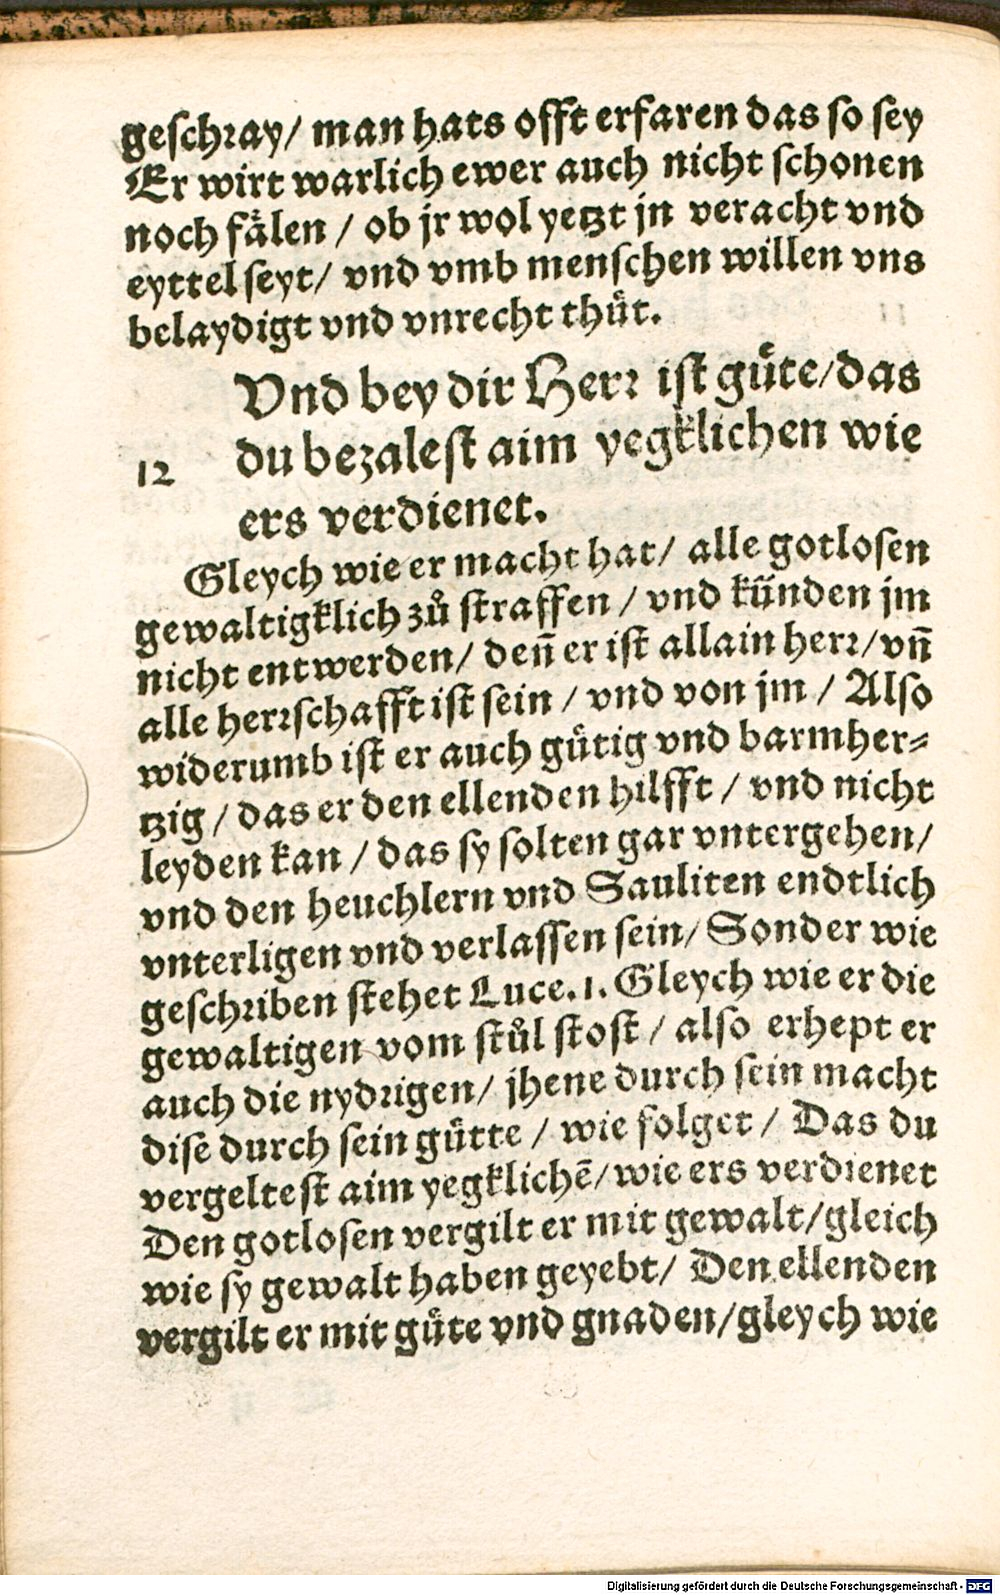 geschray/ man hats offt erfaren das so sey
Er wirt warlich ewer auch nicht schonen
noch fälen / ob jr wol yetzt jn veracht vnd
eyttel seyt/ vnd vmb menschen willen vns
belaydigt vnd vnrecht thuͤt.
Vnd bey dir Herr ist guͤte/das
12 du bezalest aim yegklichen wie
ers verdienet.
Gleych wie er macht hat/ alle gotlosen
gewaltigklich zuͦ straffen / vnd künden jm
nicht entwerden/ deñ er ist allain herr/vñ
alle herrschafft ist sein / vnd von jm / Also
widerumb ist er auch guͤtig vnd barmher⸗
tzig / das er den ellenden hilfft / vnd nicht
leyden kan / das sy solten gar vntergehen/
vnd den heuchlern vnd Sauliten endtlich
vnterligen vnd verlassen sein/ Sonder wie
geschriben stehet Luce.1. Gleych wie er die
gewaltigen vom stuͦl stost / also erhept er
auch die nydrigen/ jhene durch sein macht
dise durch sein guͤtte / wie folget / Das du
vergeltest aim yegklichẽ/wie ers verdienet
Den gotlosen vergilt er mit gewalt/gleich
wie sy gewalt haben geyebt/ Den ellenden
vergilt er mit guͤte vnd gnaden/gleych wie
Digitalisierung gefördert durch die Deutsche Forschungsgemeinschaft - DFG